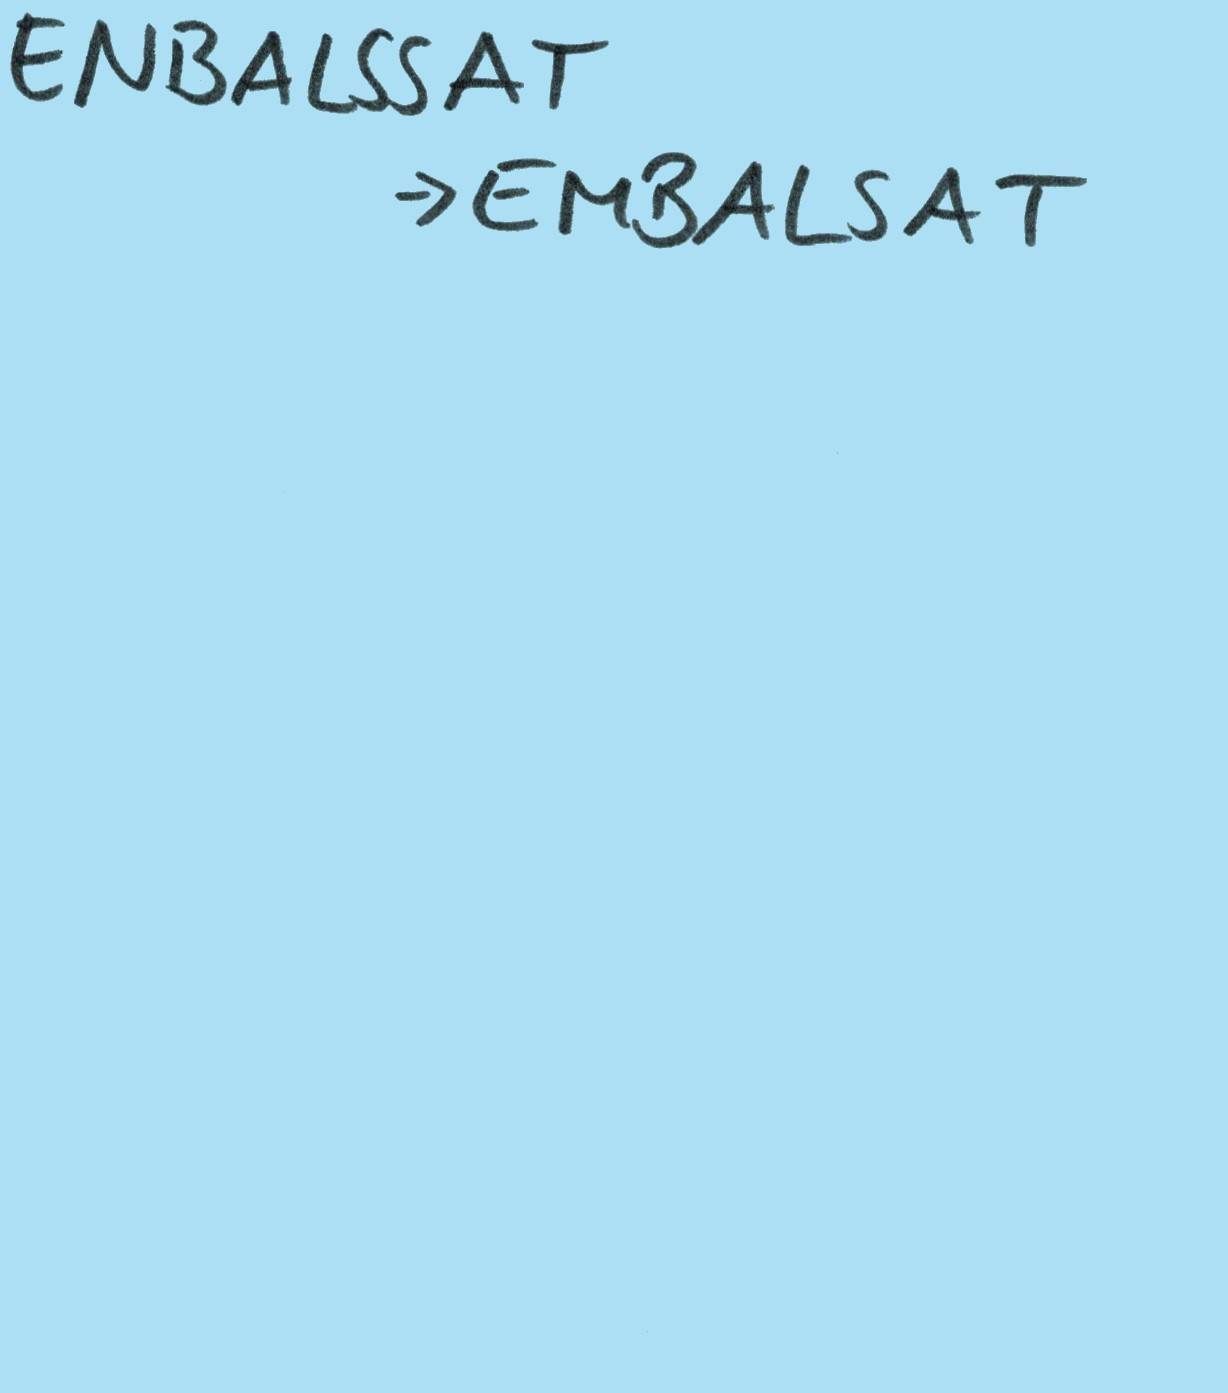 ENBALSSAT
→EMBALSAT